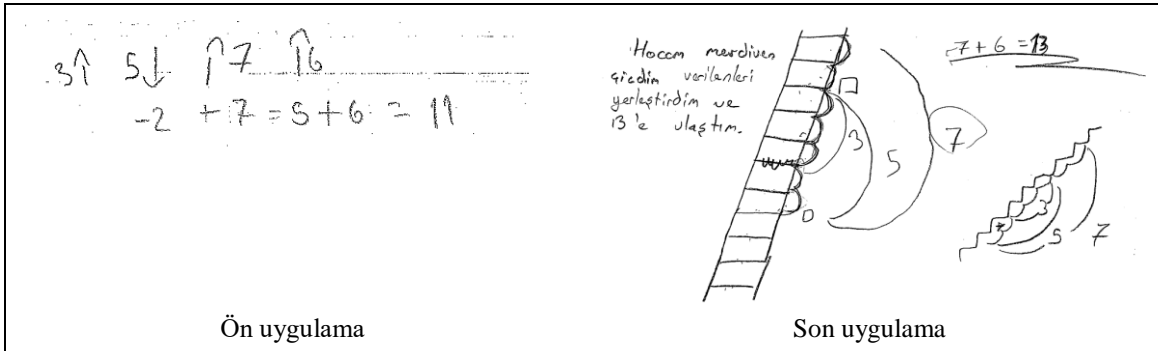 3↑ 5↓ ↑7 ↑6
-2 +7 = 5 + 6 = 11
Hocam merdiven
çizdim verilenleri
yerleştirdim ve
13'e ulaştım.
7 + 6 = 13
3
5
7
3
5
7
Ön uygulama
Son uygulama